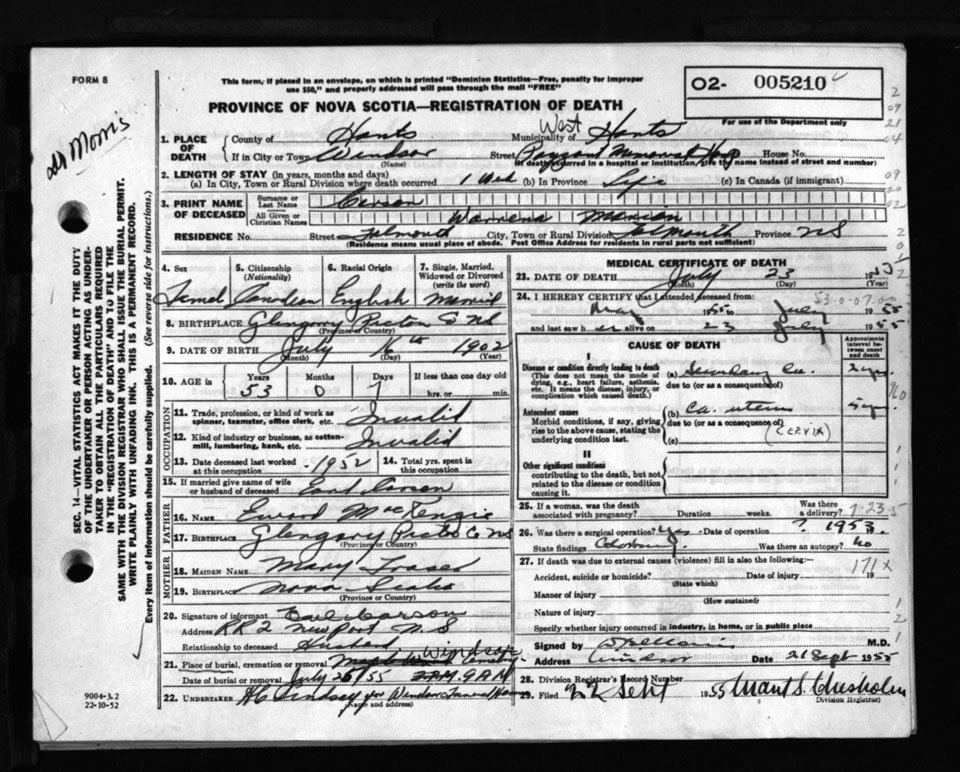 FORM 8
This form, if placed in an envelope, on which is printed "Dominion Statistics—Free, penalty for improper
use $50," and properly addressed will pass through the mail "FREE"
O2- 005210
For use of the Department only
PROVINCE OF NOVA SCOTIA—REGISTRATION OF DEATH
Morris
SEC. 14—VITAL STATISTICS ACT MAKES IT THE DUTY
OF THE UNDERTAKER OR PERSON ACTING AS UNDER-
TAKER TO OBTAIN ALL THE PARTICULARS REQUIRED
IN THE "REGISTRATION OF DEATH" AND TO FILE THE
SAME WITH THE DIVISION REGISTRAR WHO SHALL ISSUE THE BURIAL PERMIT.
WRITE PLAINLY WITH UNFADING INK. THIS IS A PERMANENT RECORD.
Every item of information should be carefully supplied. (See reverse side for instructions.)
1. PLACE OF DEATH County of Hants Municipality of West Hants
If in City or Town Windsor (Name) Street Payzant Memorial Hosp House No.
(If death occurred in a hospital or institution, give the name instead of street and number)
2. LENGTH OF STAY (in years, months and days)
(a) In City, Town or Rural Division where death occurred 1 (b) In Province Life (c) In Canada (if immigrant)
3. PRINT NAME OF DECEASED Surname or Last Name Carson
All Given or Christian Names Warrena Marion
RESIDENCE No. Street Falmouth City, Town or Rural Division Falmouth Province NS
(Residence means usual place of abode. Post Office Address for residents in rural parts not sufficient)
4. Sex 5. Citizenship (Nationality) 6. Racial Origin 7. Single, Married, Widowed or Divorced (write the word)
Femal Canadian English Married
8. BIRTHPLACE Glengarry Pictou Co NS
(Province or Country)
9. DATE OF BIRTH July 16th 1902
(Month) (Day) (Year)
10. AGE in Years Months Days If less than one day old
53 0 7 hrs. or min.
OCCUPATION
11. Trade, profession, or kind of work as spinner, teamster, office clerk, etc. Invalid
12. Kind of industry or business, as cotton-mill, lumbering, bank, etc. Invalid
13. Date deceased last worked at this occupation 1952 14. Total yrs. spent in this occupation
15. If married give name of wife or husband of deceased Earl Carson
FATHER
16. NAME MacKenzie
17. BIRTHPLACE Glengarry Pictou Co NS
(Province or Country)
MOTHER
18. MAIDEN NAME Mary Fraser
19. BIRTHPLACE Nova Scotia
(Province or Country)
20. Signature of informant Earl Carson
Address RR2 Newport N.S
Relationship to deceased Husband
21. Place of burial, cremation or removal Windsor
Date of burial or removal July 25/55 9 AM
22. UNDERTAKER HC Lindsay for Windsor Funeral Home
(Name and address)
9004-3.2
22-10-52
MEDICAL CERTIFICATE OF DEATH
23. DATE OF DEATH July 23 1955
(Month) (Day)
24. I HEREBY CERTIFY that I attended deceased from:
May 1955 to July 1955
and last saw her alive on 23 July 1955
CAUSE OF DEATH
Approximate interval between onset and death
I
Disease or condition directly leading to death
(This does not mean the mode of dying, e.g., heart failure, asthenia, etc. It means the disease, injury, or complication which caused death.)
(a) Secondary Ca.
due to (or as a consequence of)
Antecedent causes
Morbid conditions, if any, giving rise to the above cause, stating the underlying condition last.
(b) Ca. uterus
due to (or as a consequence of)
(c) (CERVIX)
II
Other significant conditions
contributing to the death, but not related to the disease or condition causing it.
25. If a woman, was the death associated with pregnancy? Duration weeks. Was there a delivery?
26. Was there a surgical operation? Yes Date of operation ? 1953
State findings Colostomy. Was there an autopsy? No
27. If death was due to external causes (violence) fill in also the following:—
171X
Accident, suicide or homicide? Date of injury 19
(State which)
Manner of injury
(How sustained)
Nature of injury
Specify whether injury occurred in industry, in home, or in public place
Signed by M.D.
Address Windsor Date 21 Sept 1955
28. Division Registrar's Record Number
29. Filed 22 Sept 1955 S. Chisholm
Division Registrar)